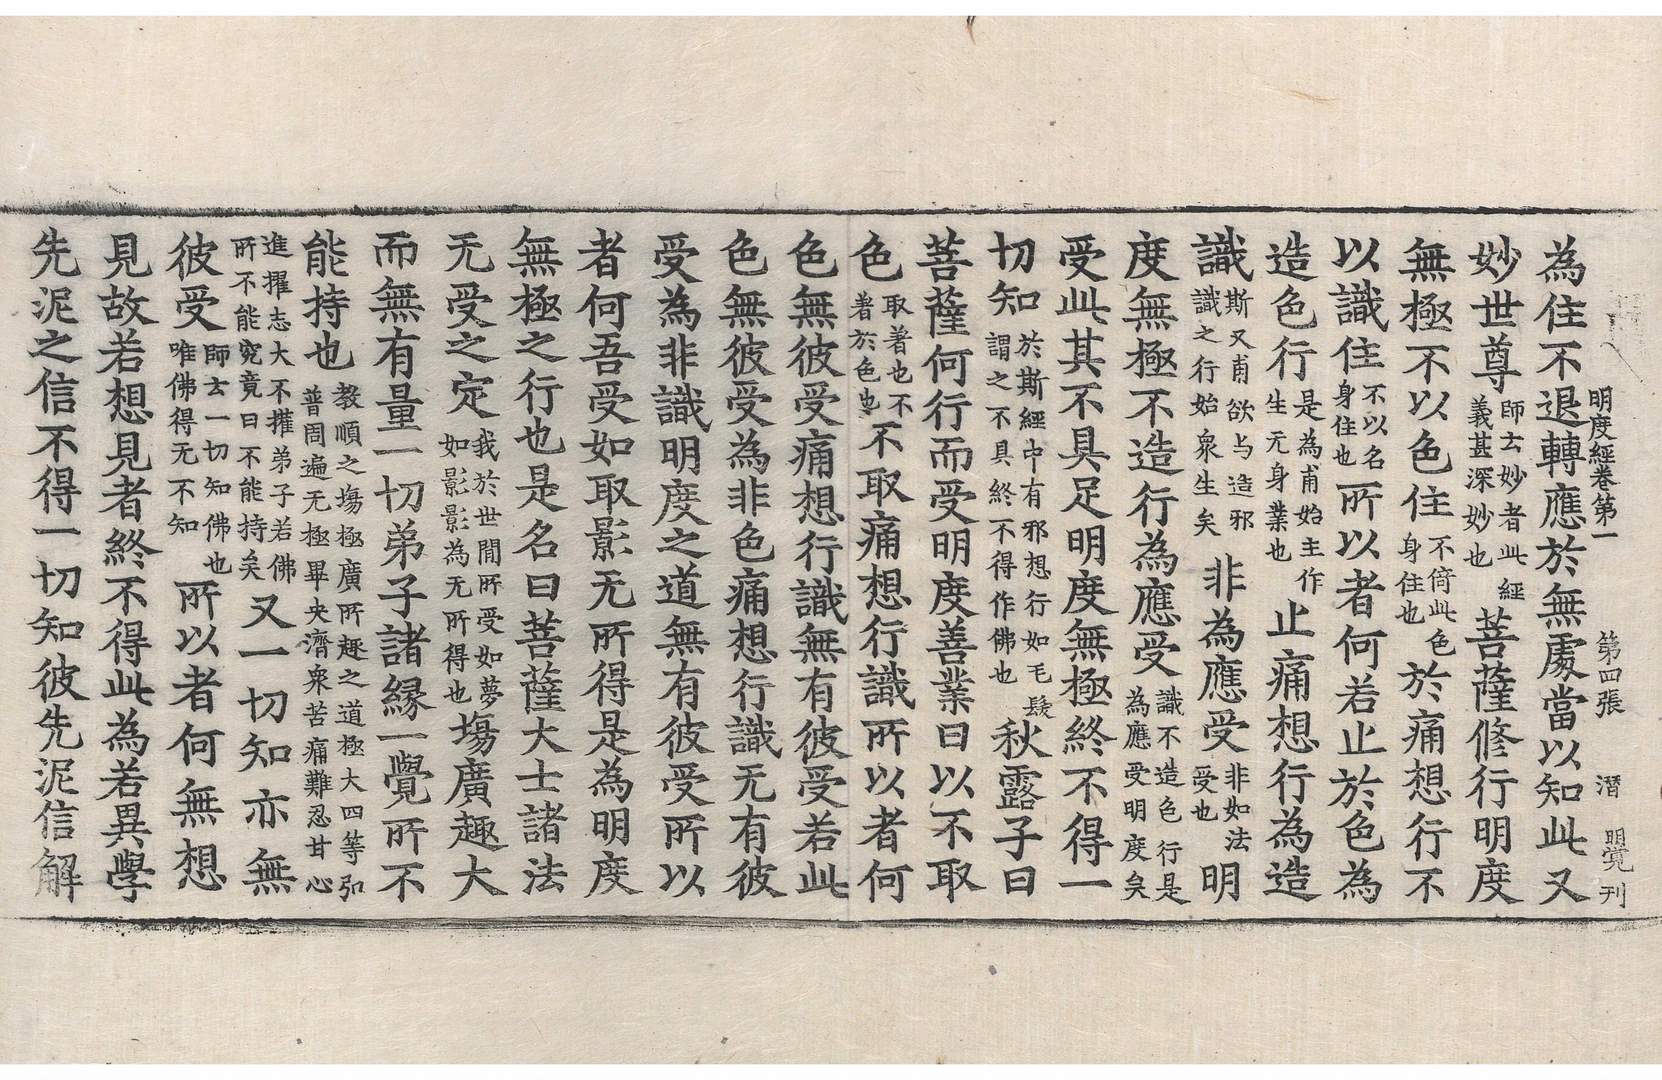 明度經卷第一 第四張 潛 覺刊
為住不退轉應於無處當以知此又
妙世尊師云妙者此經義甚深妙也菩薩修行明度
無極不以色住不倚此色身住也於痛想行不
以識住不以名身住也所以者何若止於色為
造色行是為甫始主作生无身業也止痛想行為造
識斯又甫欲与造邪識之行始衆生矣非為應受非如法受也明
度無極不造行為應受識不造色行是為應受明度矣
受此其不具足明度無極終不得一
切知於斯經中有邪想行如毛髮謂之不具終不得作佛也秋露子曰
菩薩何行而受明度善業曰以不取
色取著也不著於色也不取痛想行識所以者何
色無彼受痛想行識無有彼受若此
色無彼受為非色痛想行識无有彼
受為非識明度之道無有彼受所以
者何吾受如取影无所得是為明度
無極之行也是名曰菩薩大士諸法
无受之定我於世間所受如夢如影影為无所得也場廣趣大
而無有量一切弟子諸緣一覺所不
能持也教順之塲極廣所趣之道極大四等弘普周遍无極畢央濟衆苦痛難忍甘心
進擢志大不㩴弟子若佛所不能究竟曰不能持矣又一切知亦無
彼受師云一切知佛也唯佛得无不知所以者何無想
見故若想見者終不得此為若異學
先泥之信不得一切知彼先泥信解